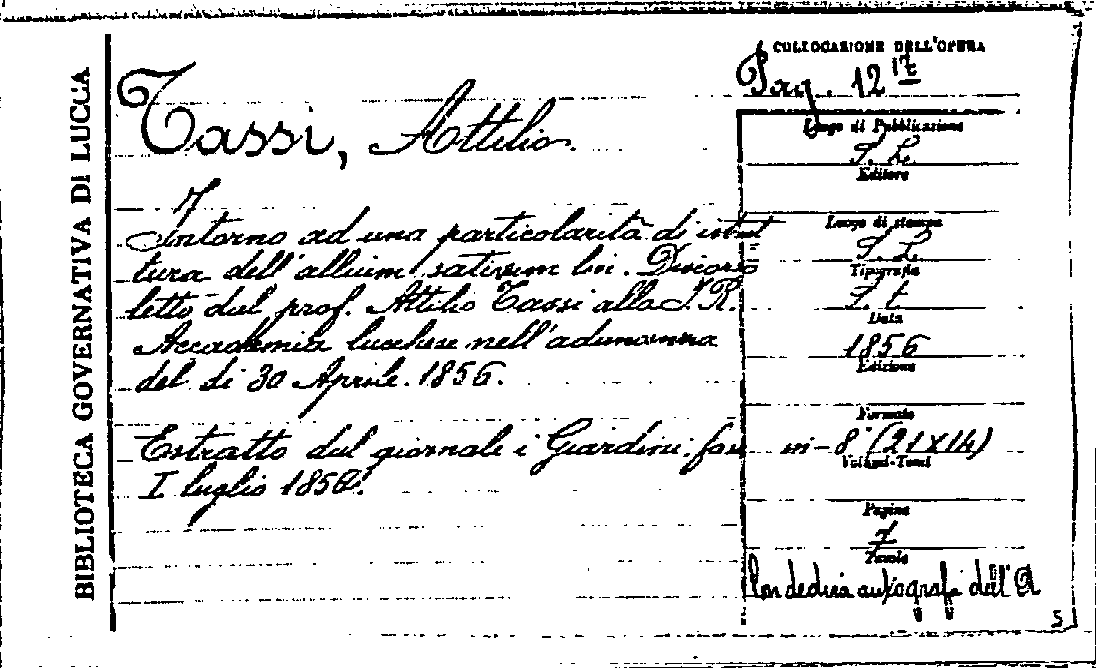 BIBLIOTECA GOVERNATIVA DI LUCCA
COLLOCAZIONE DELL'OPERA
Tassi, Attilio.
Intorno ad una particolarità di strut=
tura dell'allium sativum lin. Discorso
letto dal prof. Attilio Tassi alla I. R.
Accademia lucchese nell'adunanza
del dì 30 Aprile. 1856.
Estratto dal giornale i Giardini. fasc
I luglio 1856.
Luogo di Pubblicazione
S. L.
Editore
Luogo di stampa
S. L.
Tipografia
S. t.
Data
1856
Edizione
Formato
in-8° (21x14)
Volumi-Tomi
Pagine
7
Tavole
Con dedica autografa dell'A
5